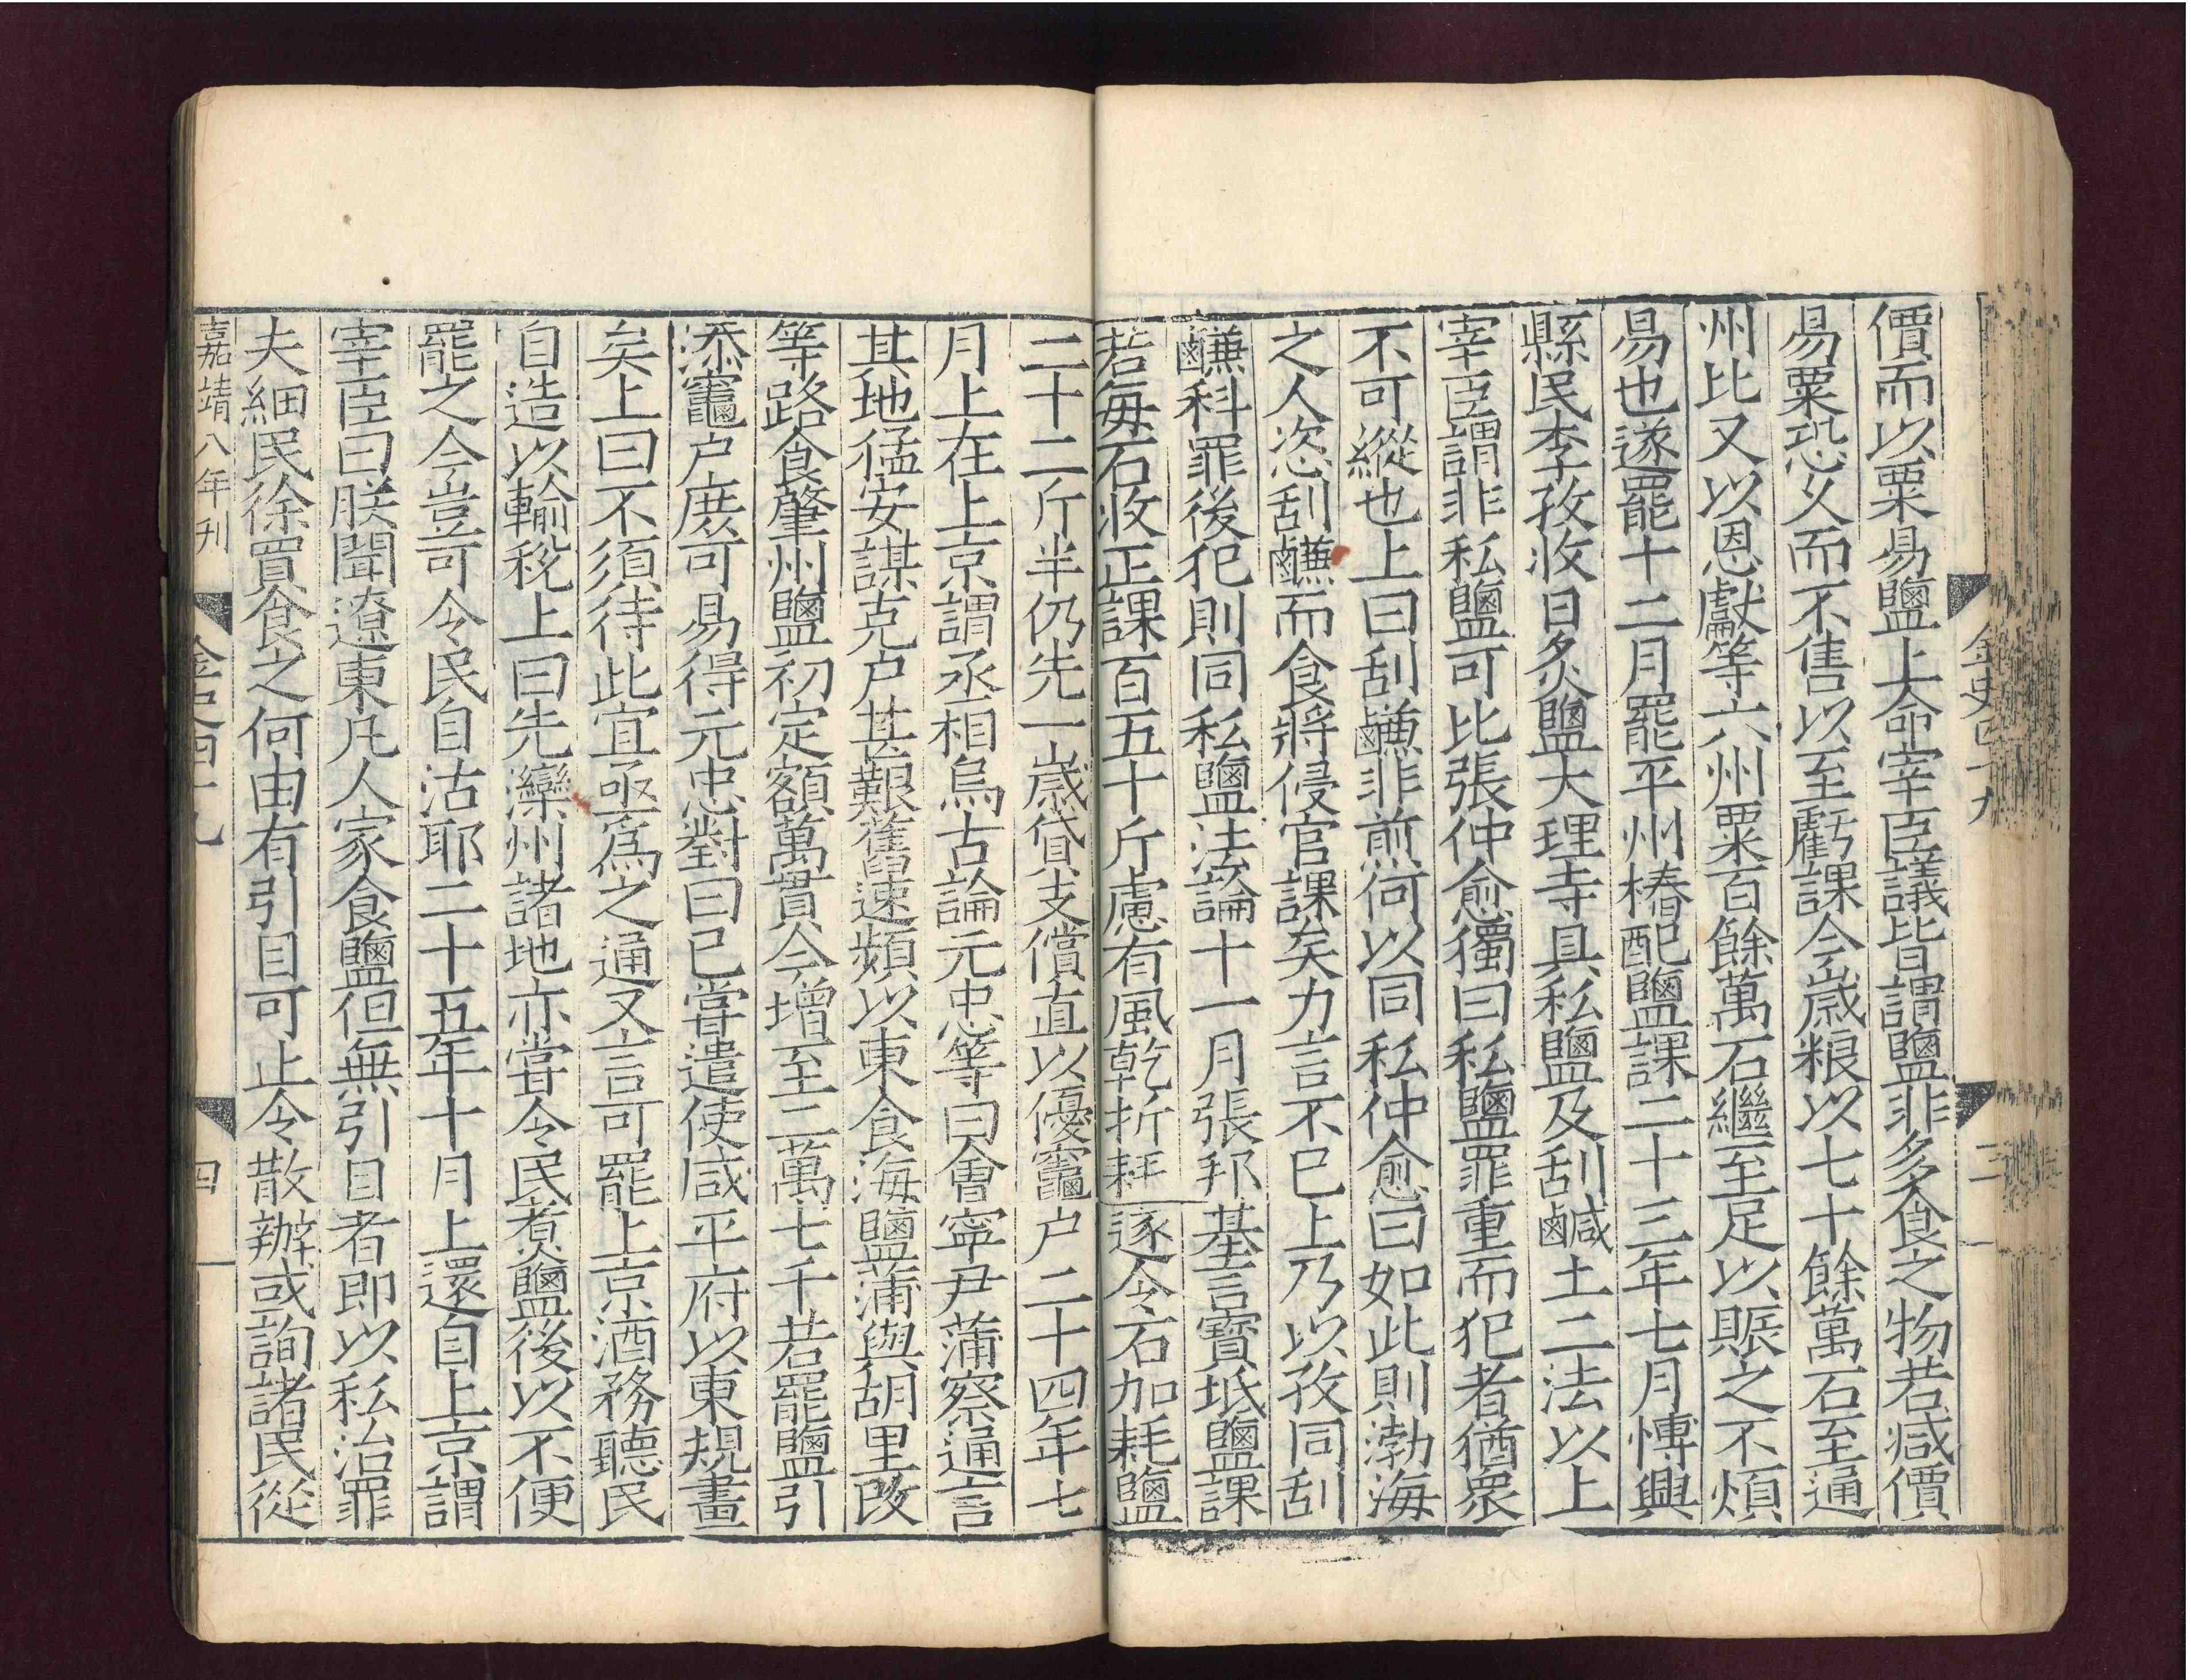 價而以粟易鹽上命宰臣議皆謂鹽非多食之物若减價
易粟恐久而不售以至虧課今歲粮以七十餘萬石至通
州比又以恩獻等六州粟百餘萬石繼至足以賑之不煩
易也遂罷十二月罷平州樁配鹽課二十三年七月愽興
縣民李孜收日炙鹽大理寺具私鹽及刮鹹土二法以上
宰臣謂非私鹽可比張仲愈獨曰私鹽罪重而犯者猶衆
不可縱也上曰刮鹻非煎何以同私仲愈曰如此則渤海
之人恣刮鹻而食將侵官課矣力言不已上乃以孜同刮
鹻科罪後犯則同私鹽法論十一月張邦基言寶坻鹽課
若每石收正課百五十斤慮有風乾折耗遂令石加耗鹽
二十二斤半仍先一歲貸支償直以優竈户二十四年七
月上在上京謂丞相烏古論元忠等曰會寧尹蒲察通言
其地猛安謀克户甚艱舊速頻以東食海鹽蒲與胡里改
等路食肇州鹽初定額萬貫今增至二萬七千若罷鹽引
添竈户庶可易得元忠對曰已嘗遣使咸平府以東規畫
矣上曰不須待此宜亟爲之通又言可罷上京酒務聽民
自造以輸税上曰先灤州諸地亦嘗令民煮鹽後以不便
罷之今豈可令民自沽耶二十五年十月上還自上京謂
宰臣曰朕聞遼東凡人家食鹽但無引目者即以私治罪
夫細民徐買食之何由有引目可止令散辦或詢諸民從
嘉靖八年刊
金史四十九
四